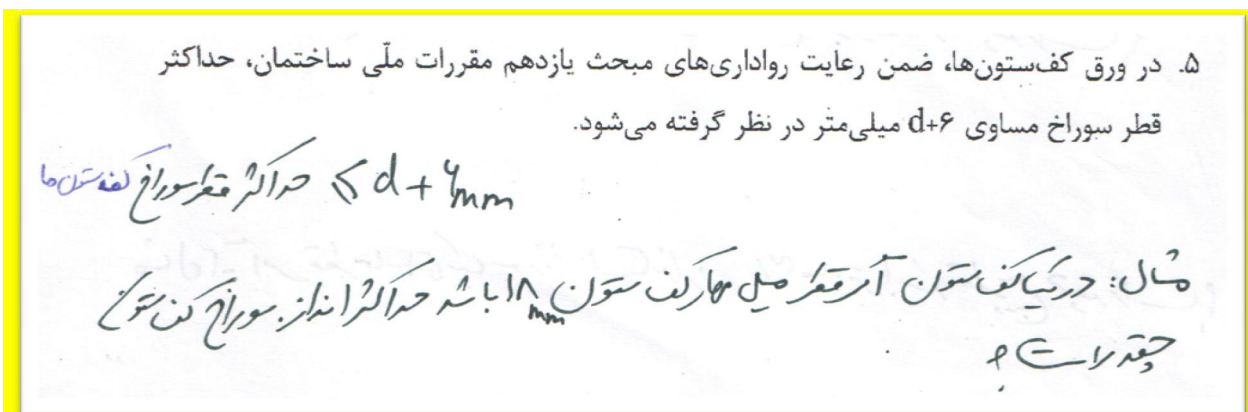 ۵. در ورق کف‌ستون‌ها، ضمن رعایت رواداری‌های مبحث یازدهم مقررات ملّی ساختمان، حداکثر
قطر سوراخ مساوی d+۶ میلی‌متر در نظر گرفته می‌شود.
حداکثر قطر سوراخ کف ستون ها ≤ d + ۶mm
مثال: در یک کف ستون اگر قطر میل مهار کف ستون ۱۸mm باشد حداکثر اندازه سوراخ کف ستون
چقدر است؟